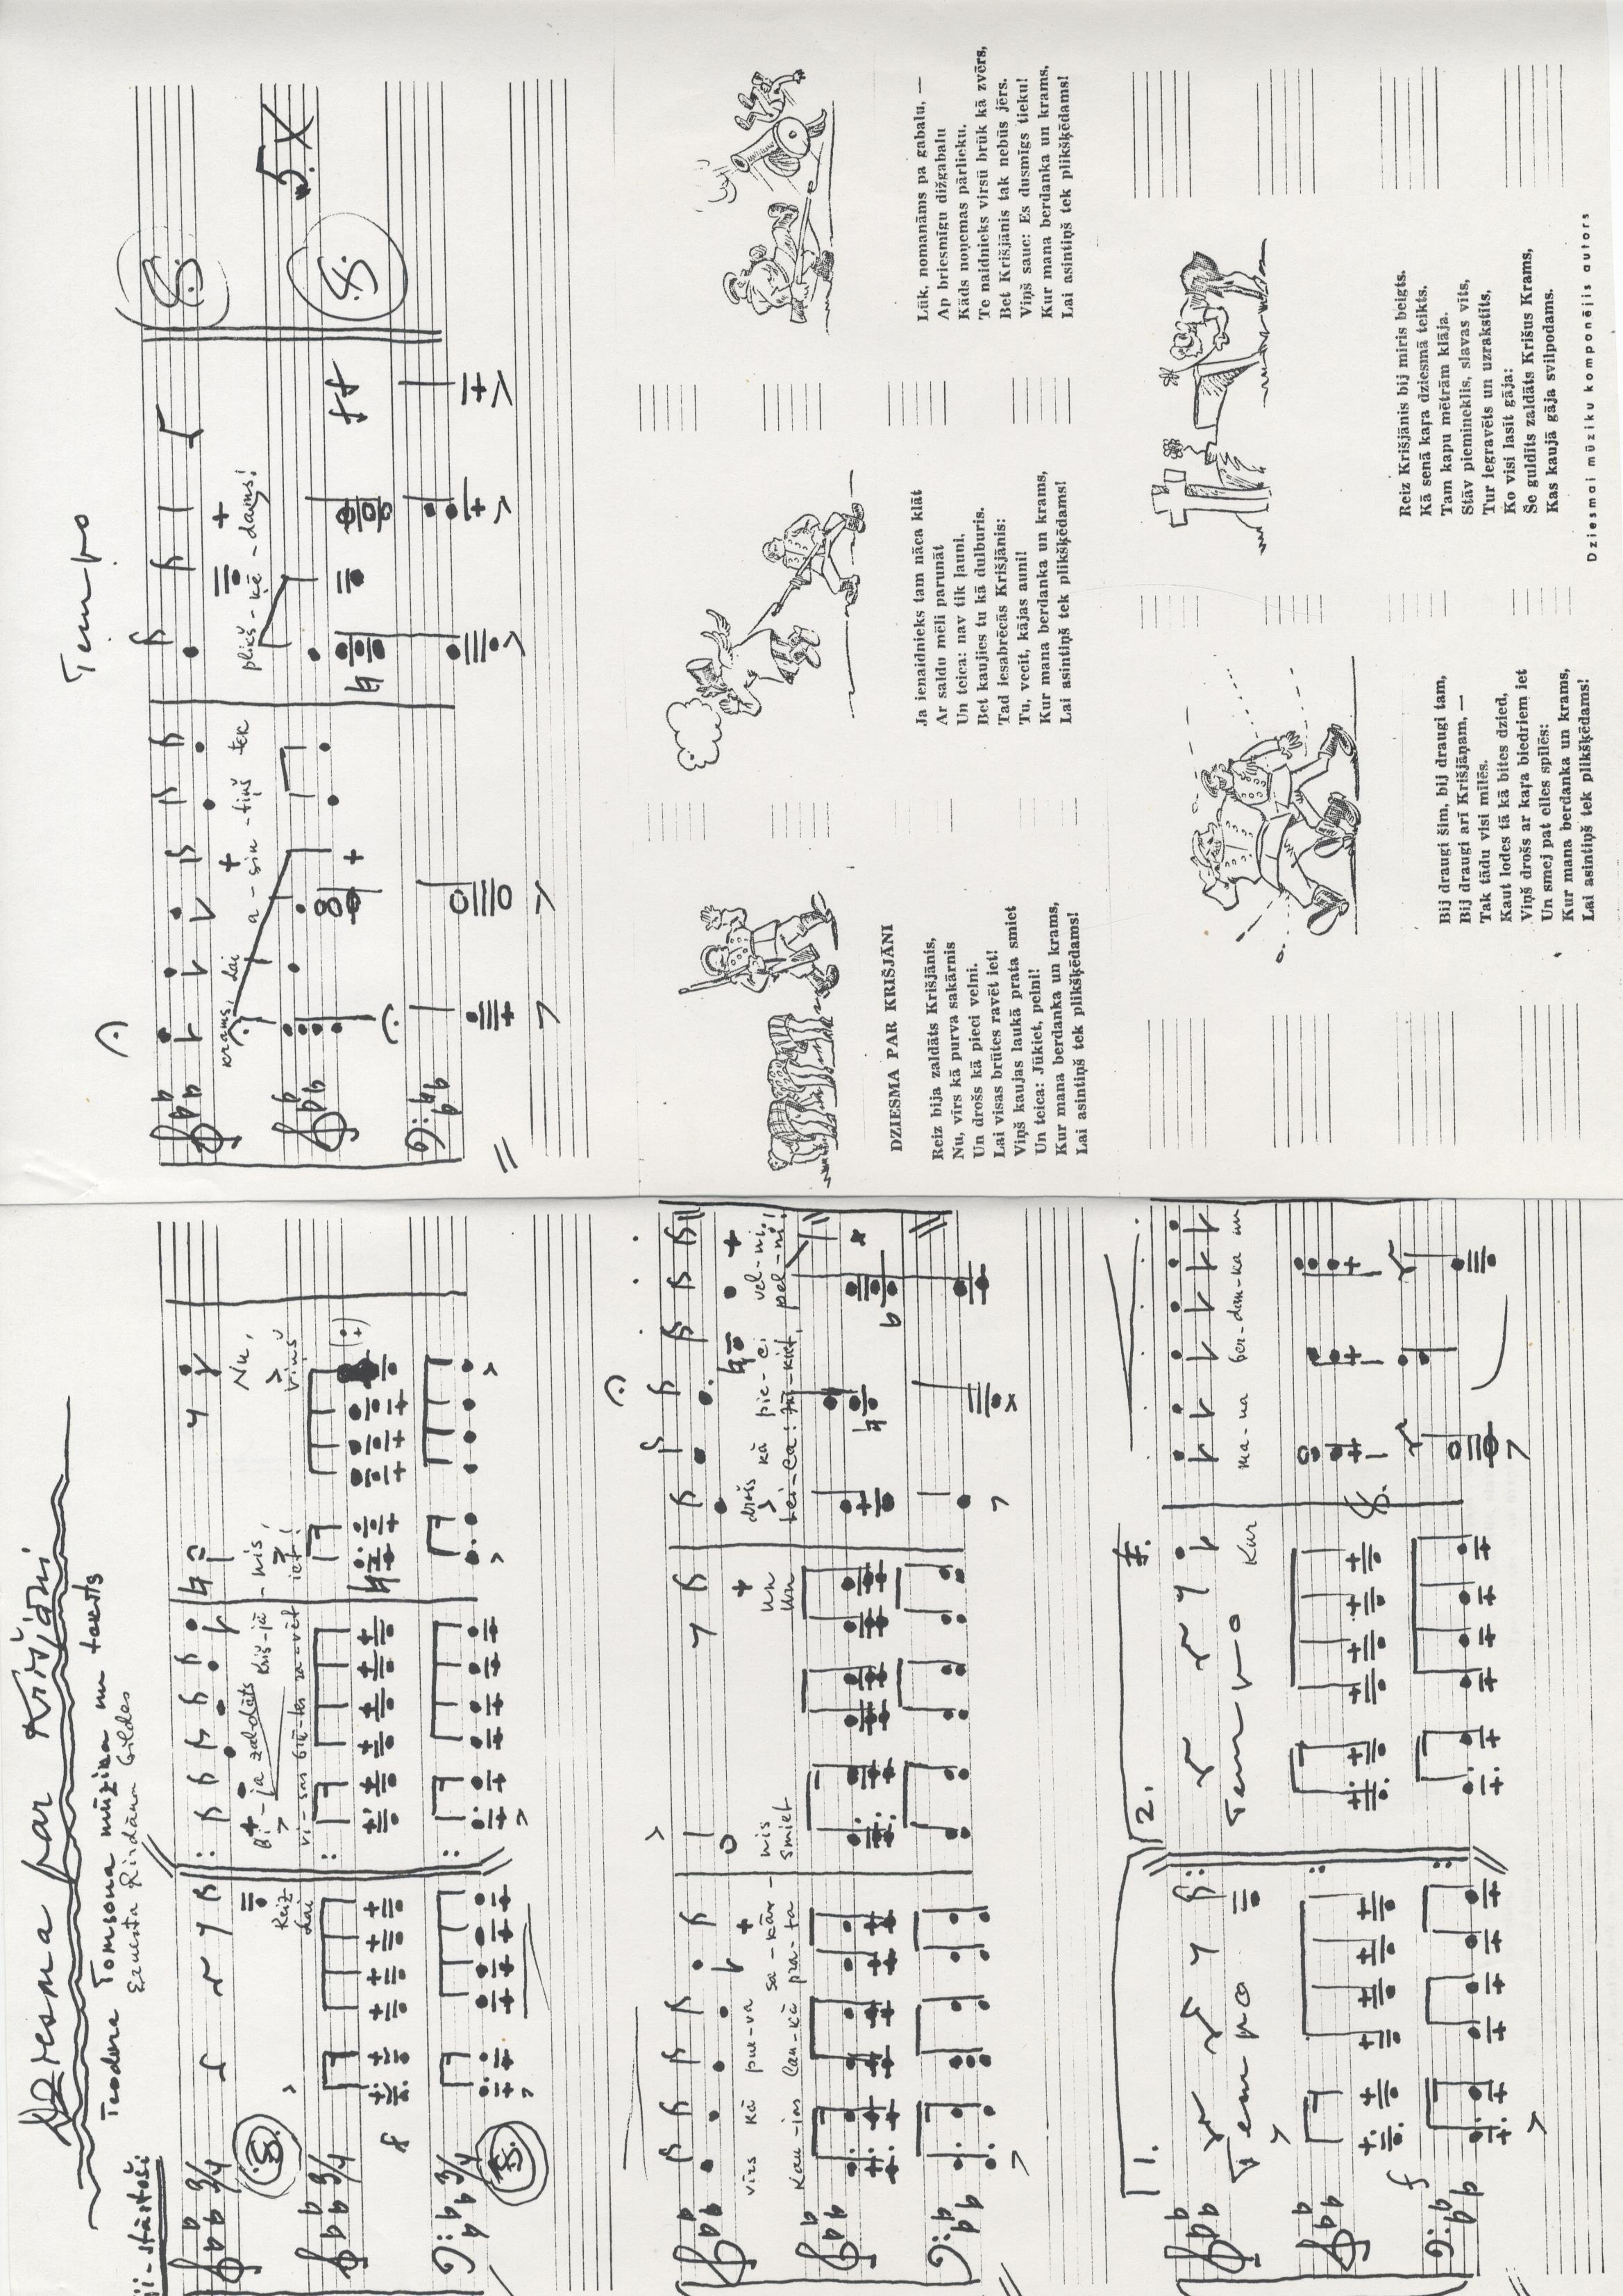 Dziesma par Krišjāni
Teodora Tomsona mūzika un teksts
Ernesta Rirdāna bildes
stāstoši
Reiz bi - ja zal-dāts Kriš-jā - nis, Nu,
Lai vi - sas brū-tes ra-vēt iet! Viņš
vīrs kā pur-va sa-kār - nis Un drošs kā pie-ci vel-ni,
kau-jas lau-kā pra-ta smiet Un tei-ca: Jū-kiet, pel-ni!
1. 2.
Tempo Tempo Kur ma-na ber-dan-ka un
Tempo
krams, Lai a-sin-tiņš tek plikš-ķē-dams!
5X
DZIESMA PAR KRIŠJĀNI
Reiz bija zaldāts Krišjānis,
Nu, vīrs kā purva sakārnis
Un drošs kā pieci velni.
Lai visas brūtes ravēt iet!
Viņš kaujas laukā prata smiet
Un teica: Jūkiet, pelni!
Kur mana berdanka un krams,
Lai asintiņš tek plikšķēdams!
Ja ienaidnieks tam nāca klāt
Ar saldu mēli parunāt
Un teica: nav tik ļauni,
Bet kaujies tu kā dulburis.
Tad iesabrēcās Krišjānis:
Tu, vecīt, kājas auni!
Kur mana berdanka un krams,
Lai asintiņš tek plikšķēdams!
Lūk, nomanāms pa gabalu, —
Ap briesmīgu dižgabalu
Kāds noņemas pārlieku.
Te naidnieks virsū brūk kā zvērs,
Bet Krišjānis tak nebūs jērs.
Viņš sauc: Es dusmīgs tieku!
Kur mana berdanka un krams,
Lai asintiņš tek plikšķēdams!
Bij draugi šim, bij draugi tam,
Bij draugi arī Krišjāņam, —
Tak tādu visi mīlēs.
Kaut lodes tā kā bites dzied,
Viņš drošs ar kaŗa biedriem iet
Un smej pat elles spīlēs:
Kur mana berdanka un krams,
Lai asintiņš tek plikšķēdams!
Reiz Krišjānis bij miris beigts.
Kā senā kaŗa dziesmā teikts.
Tam kapu mētrām klāja.
Stāv piemineklis, slavas vīts,
Tur iegravēts un uzrakstīts,
Ko visi lasīt gāja:
Še guldīts zaldāts Krišus Krams,
Kas kaujā gāja svilpodams.
Dziesmai mūziku komponējis autors